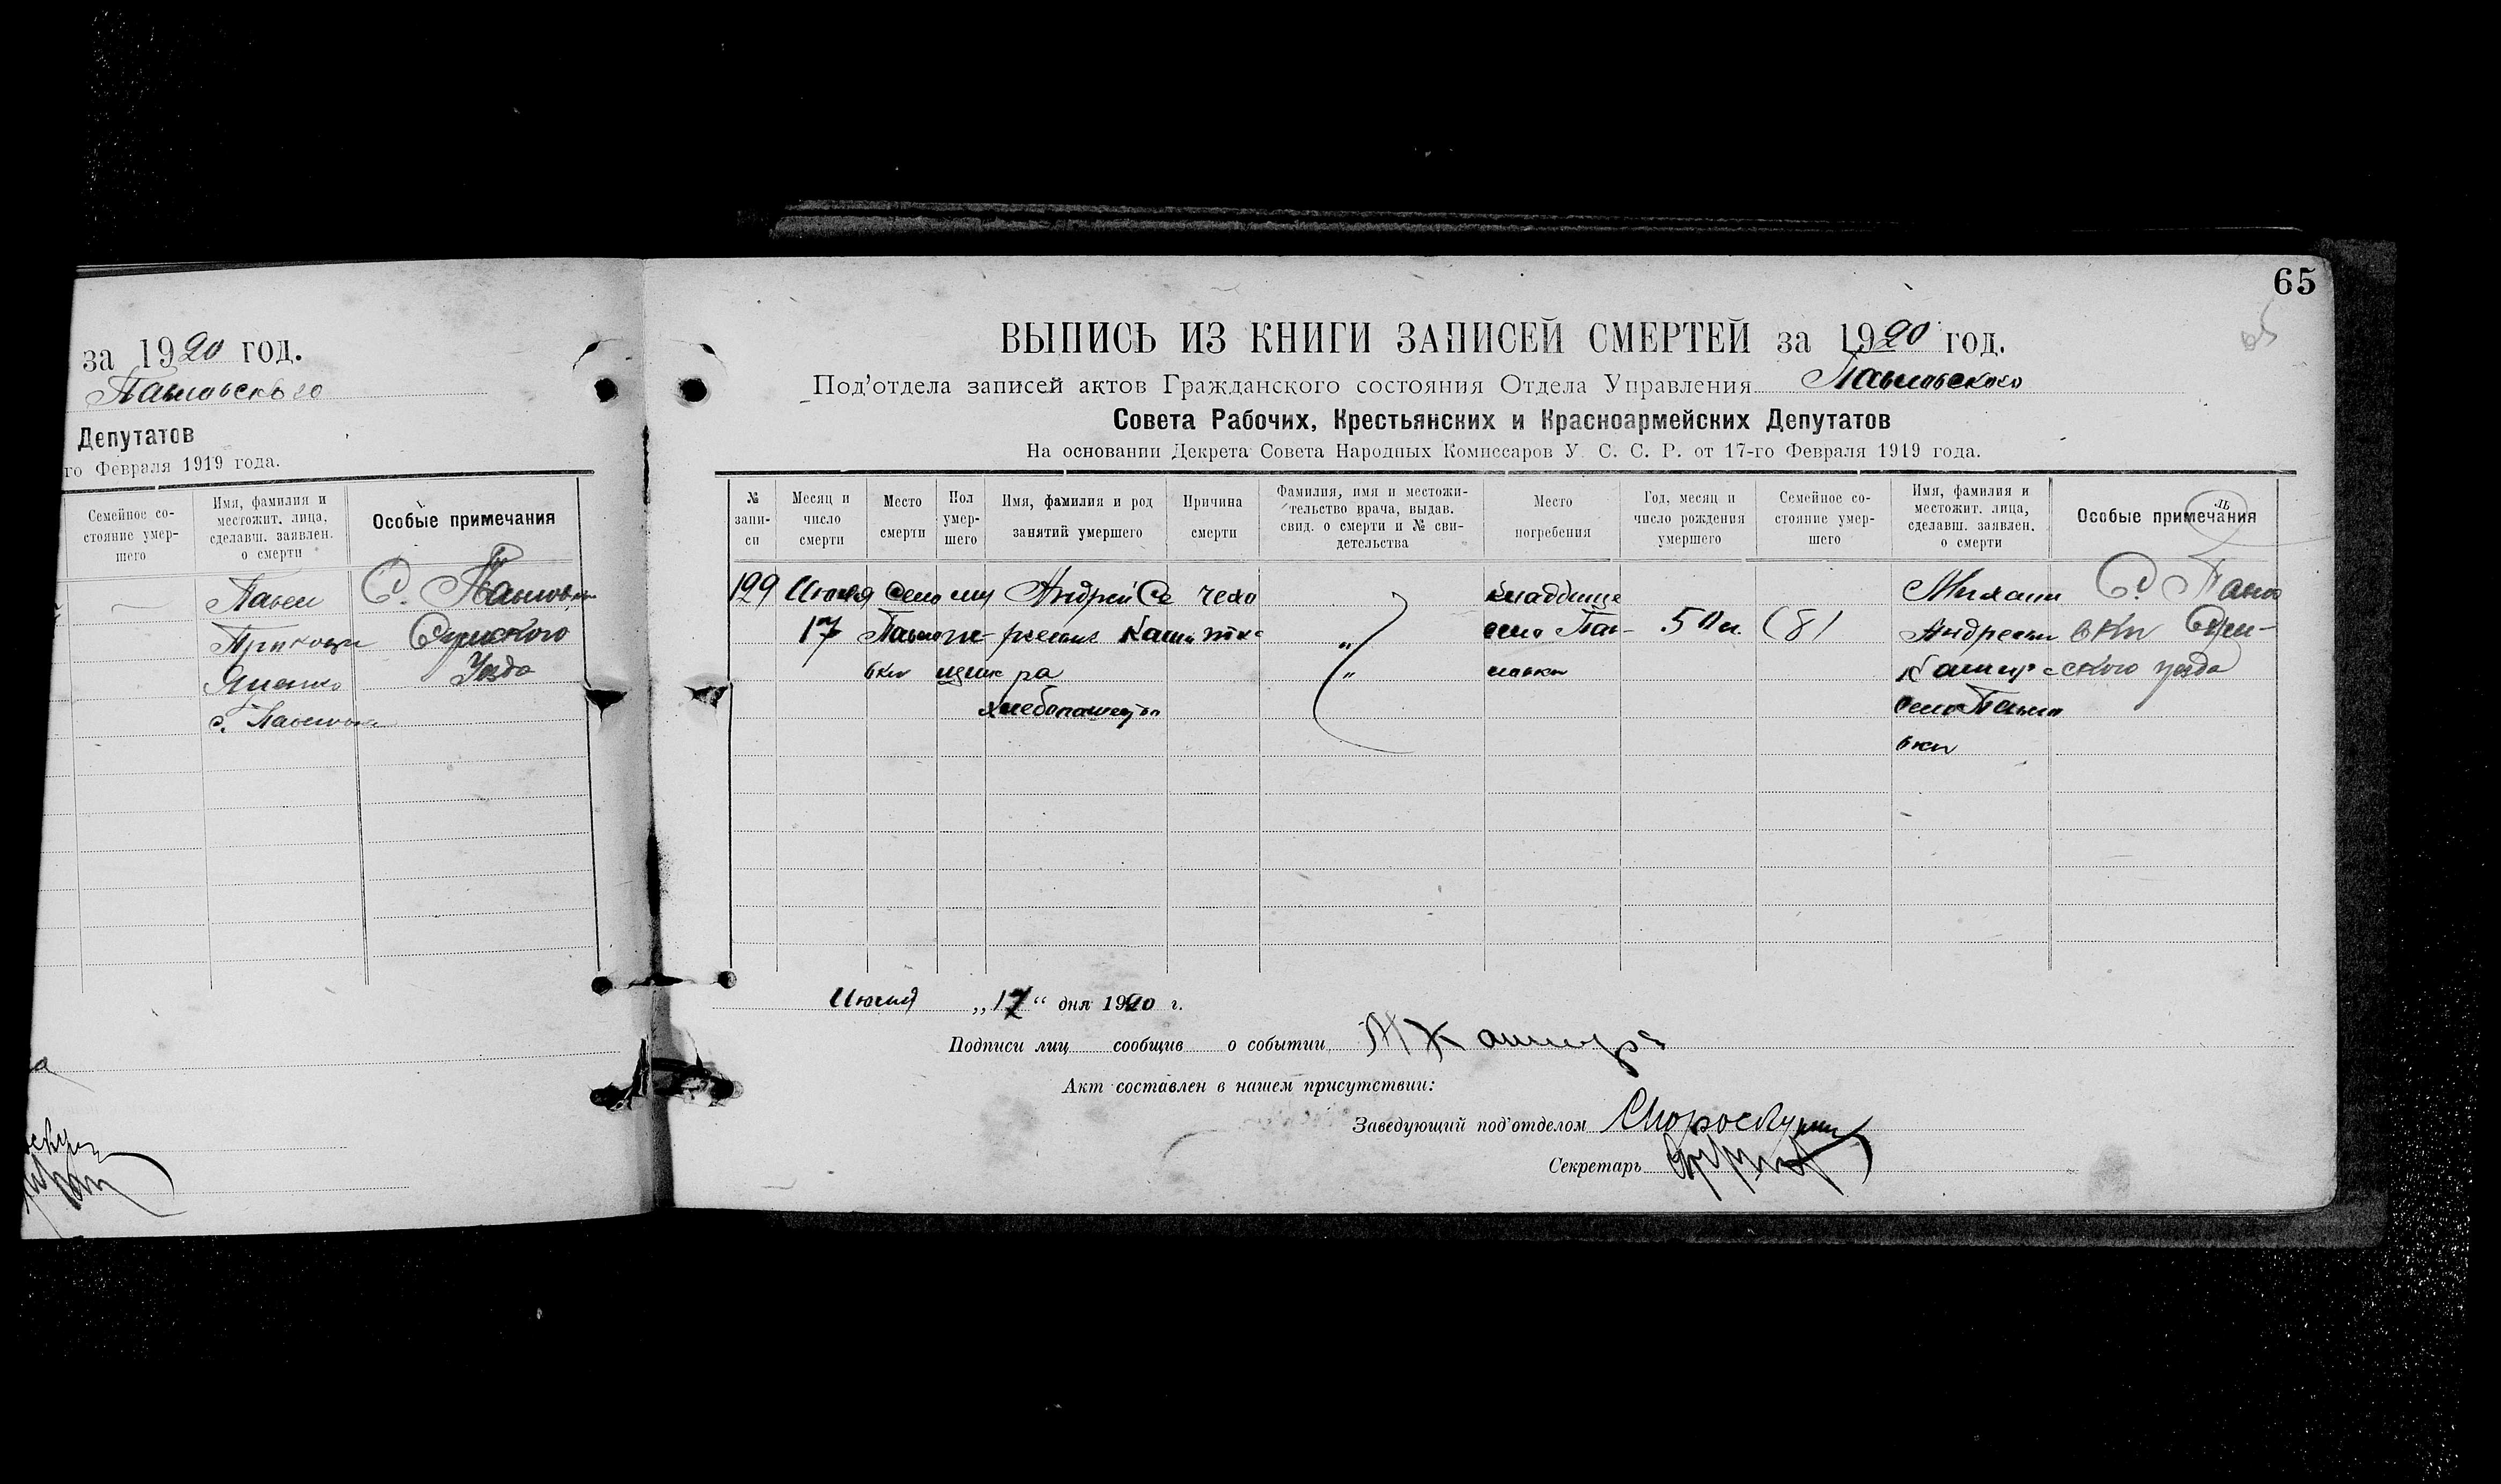 за 1920 год.
Павловского
Депутатов
го Февраля 1919 года.
Семейное со-
стояние умер-
шего
Имя, фамилия и
местожит. лица,
сделавш. заявлен.
о смерти
Особые примечания
Павел
С. Павловки
Сумского
Уезда
Яценко
с. Павловка
65
ВЫПИСЬ ИЗ КНИГИ ЗАПИСЕЙ СМЕРТЕЙ за 1920 год.
Под'отдела записей актов Гражданского состояния Отдела Управления Павловского
Совета Рабочих, Крестьянских и Красноармейских Депутатов
На основании Декрета Совета Народных Комиссаров У. С. С. Р. от 17-го Февраля 1919 года.
№
запи-
си
Месяц и
число
смерти
Место
смерти
Пол
умер-
шего
Имя, фамилия и род
занятий умершего
Причина
смерти
Фамилия, имя и местожи-
тельство врача, выдав.
свид. о смерти и № сви-
детельства
Место
погребения
Год, месяц и
число рождения
умершего
Семейное со-
стояние умер-
шего
Имя, фамилия и
местожит. лица,
сделавш. заявлен.
о смерти
Особые примечания
199
Июля
17
Село
Павло
вки
Андрей Се
Каши
ра
хлебопашец
чехо
тка
кладбище
село Пав-
ловки
50 л.
(8)
Михаил
Андреев
Кашир
село Павло
вки
С. Павло
вки Сум-
ского уезда
Июля „17“ дня 1920 г.
Подписи лиц сообщив о событии М Кашура
Акт составлен в нашем присутствии:
Заведующий под'отделом
Секретарь